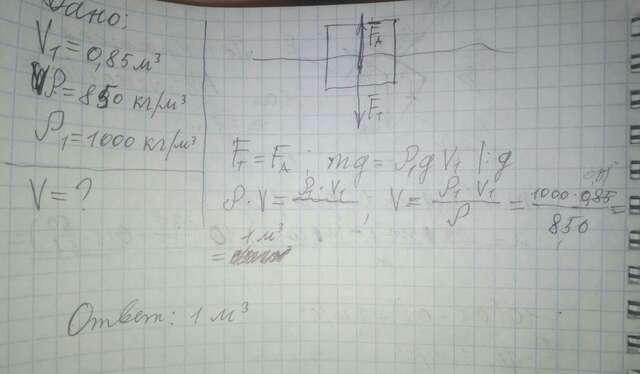 Дано:
V₁ = 0,85 м³
ρ = 850 кг/м³
ρ₁ = 1000 кг/м³
V = ?
F_A
F_т
F_т = F_A ; mg = ρ₁gV₁ |:g
ρ · V = ρ₁ · V₁ , V = ρ₁ · V₁ / ρ = 1000 · 0,85 / 850 =
= 1 м³
Ответ: 1 м³